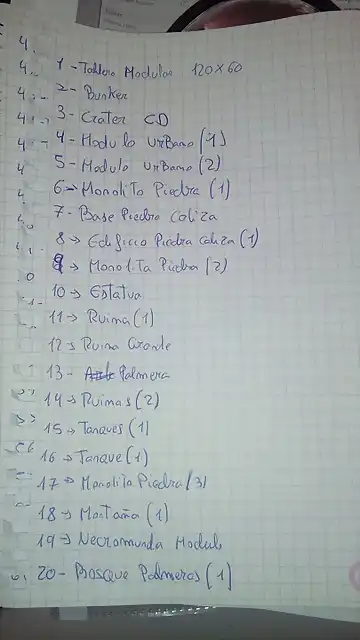 1 - Tablero Modular 120x60
2 - Bunker
3 - Crater CD
4 - Modulo urBano (1)
5 - Modulo urBano (2)
6 -> Monolito Piedra (1)
7 - Base Piedra Caliza
8 -> Edificio Piedra caliza (1)
9 -> Monolita Piedra (2)
10 -> Estatua
11 -> Ruina (1)
12 -> Ruina Grande
13 - Palmera
14 -> Ruinas (2)
15 -> Tanques (1)
16 -> Tanque (1)
17 -> Monolita Piedra (3)
18 -> Montaña (1)
19 -> Necromunda Modulo
20 - Bosque Palmeras (1)